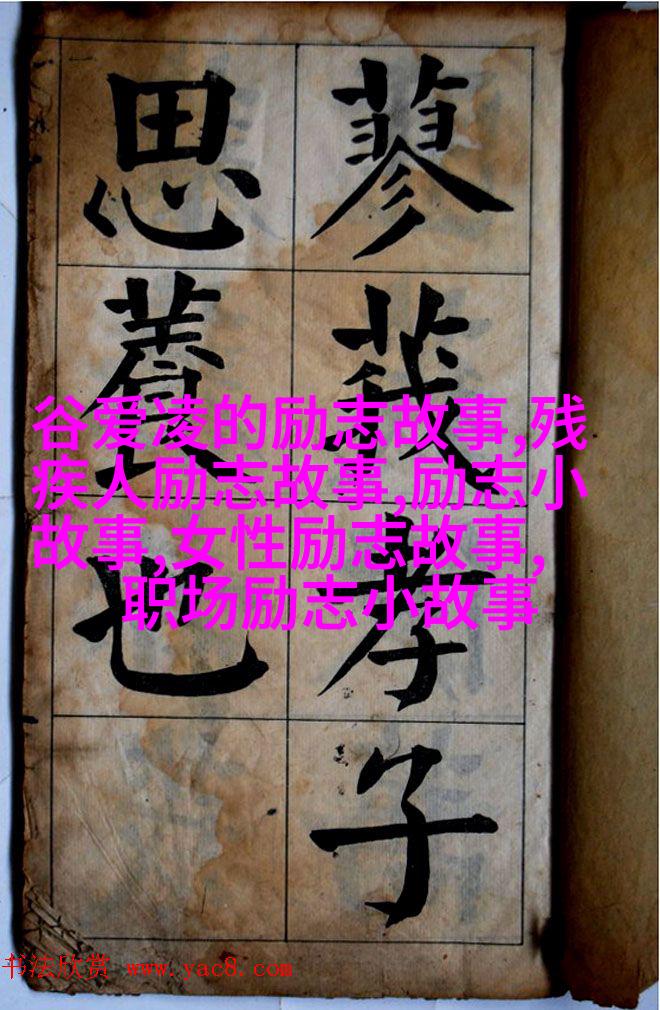 蓼莪孝子
思養也
谷爱凌的励志故事,残
疾人励志故事,励志小
故事,女性励志故事,
职场励志小故事
书法欣赏 www.yac8.com